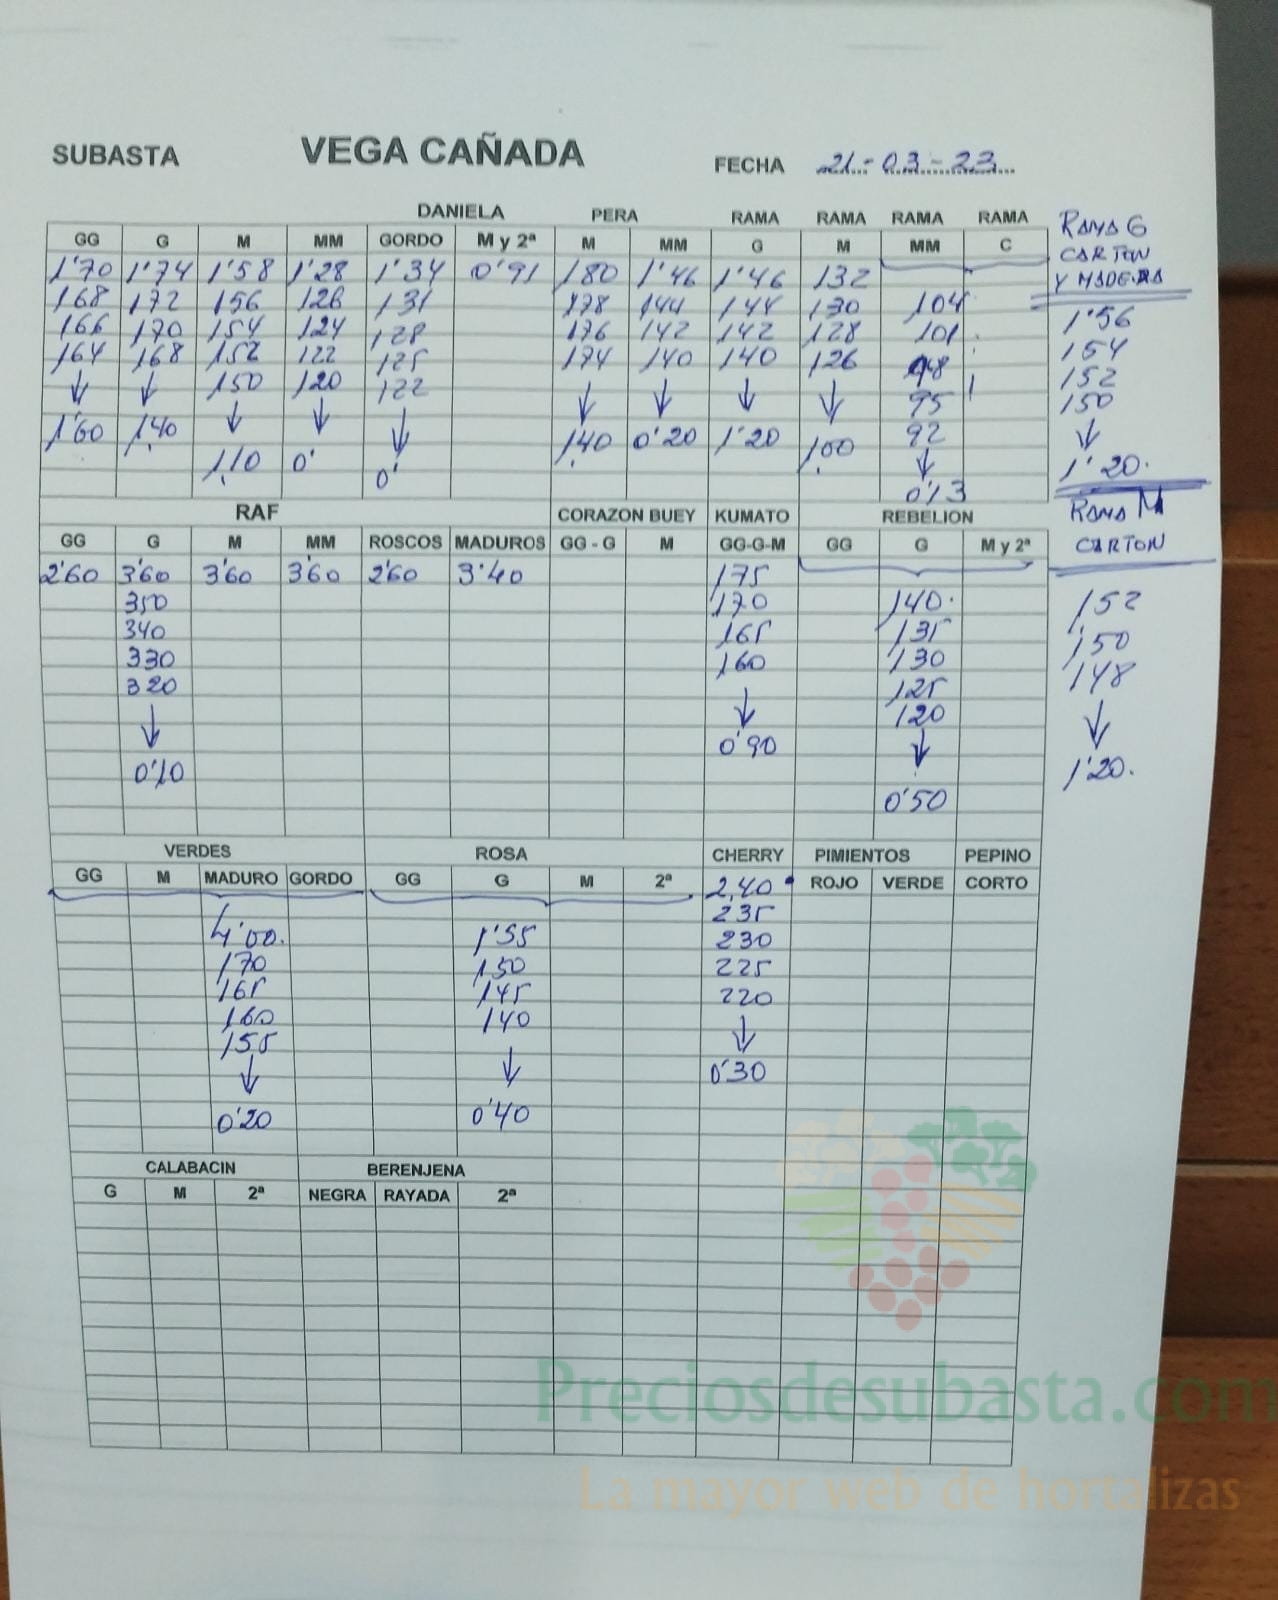 SUBASTA VEGA CAÑADA FECHA 21-03-23
DANIELA PERA RAMA RAMA RAMA RAMA RAMA G
GG G M MM GORDO M y 2ª M MM G M MM C CARTON
1'70 1'74 1'58 1'28 1'34 0'91 180 1'46 1'46 132 Y MADERA
168 172 156 126 131 178 144 144 130 104 1'56
166 170 154 124 128 176 142 142 128 101 154
164 168 152 122 125 174 140 140 126 98 152
↓ ↓ 150 120 122 ↓ ↓ ↓ ↓ 95 150
1'60 1,40 ↓ ↓ ↓ 1,40 0'20 1'20 1,00 92 ↓
1,10 0' 0' ↓ 1'20.
0'13
RAF CORAZON BUEY KUMATO REBELION RAMA M
GG G M MM ROSCOS MADUROS GG - G M GG-G-M GG G M y 2ª CARTON
2'60 3'60 3'60 3'60 2'60 3'40 175
350 170 140. 152
340 165 135 150
330 160 130 148
320 ↓ 125 ↓
↓ 0'90 120 1'20.
0'10 ↓
0'50
VERDES ROSA CHERRY PIMIENTOS PEPINO
GG M MADURO GORDO GG G M 2ª 2,40 ROJO VERDE CORTO
235
4'00. 1'55 230
170 150 225
165 145 220
160 140 ↓
155 ↓ 0'30
↓ 0'40
0'20
CALABACIN BERENJENA
G M 2ª NEGRA RAYADA 2ª
Preciosdesubasta.com
La mayor web de hortalizas